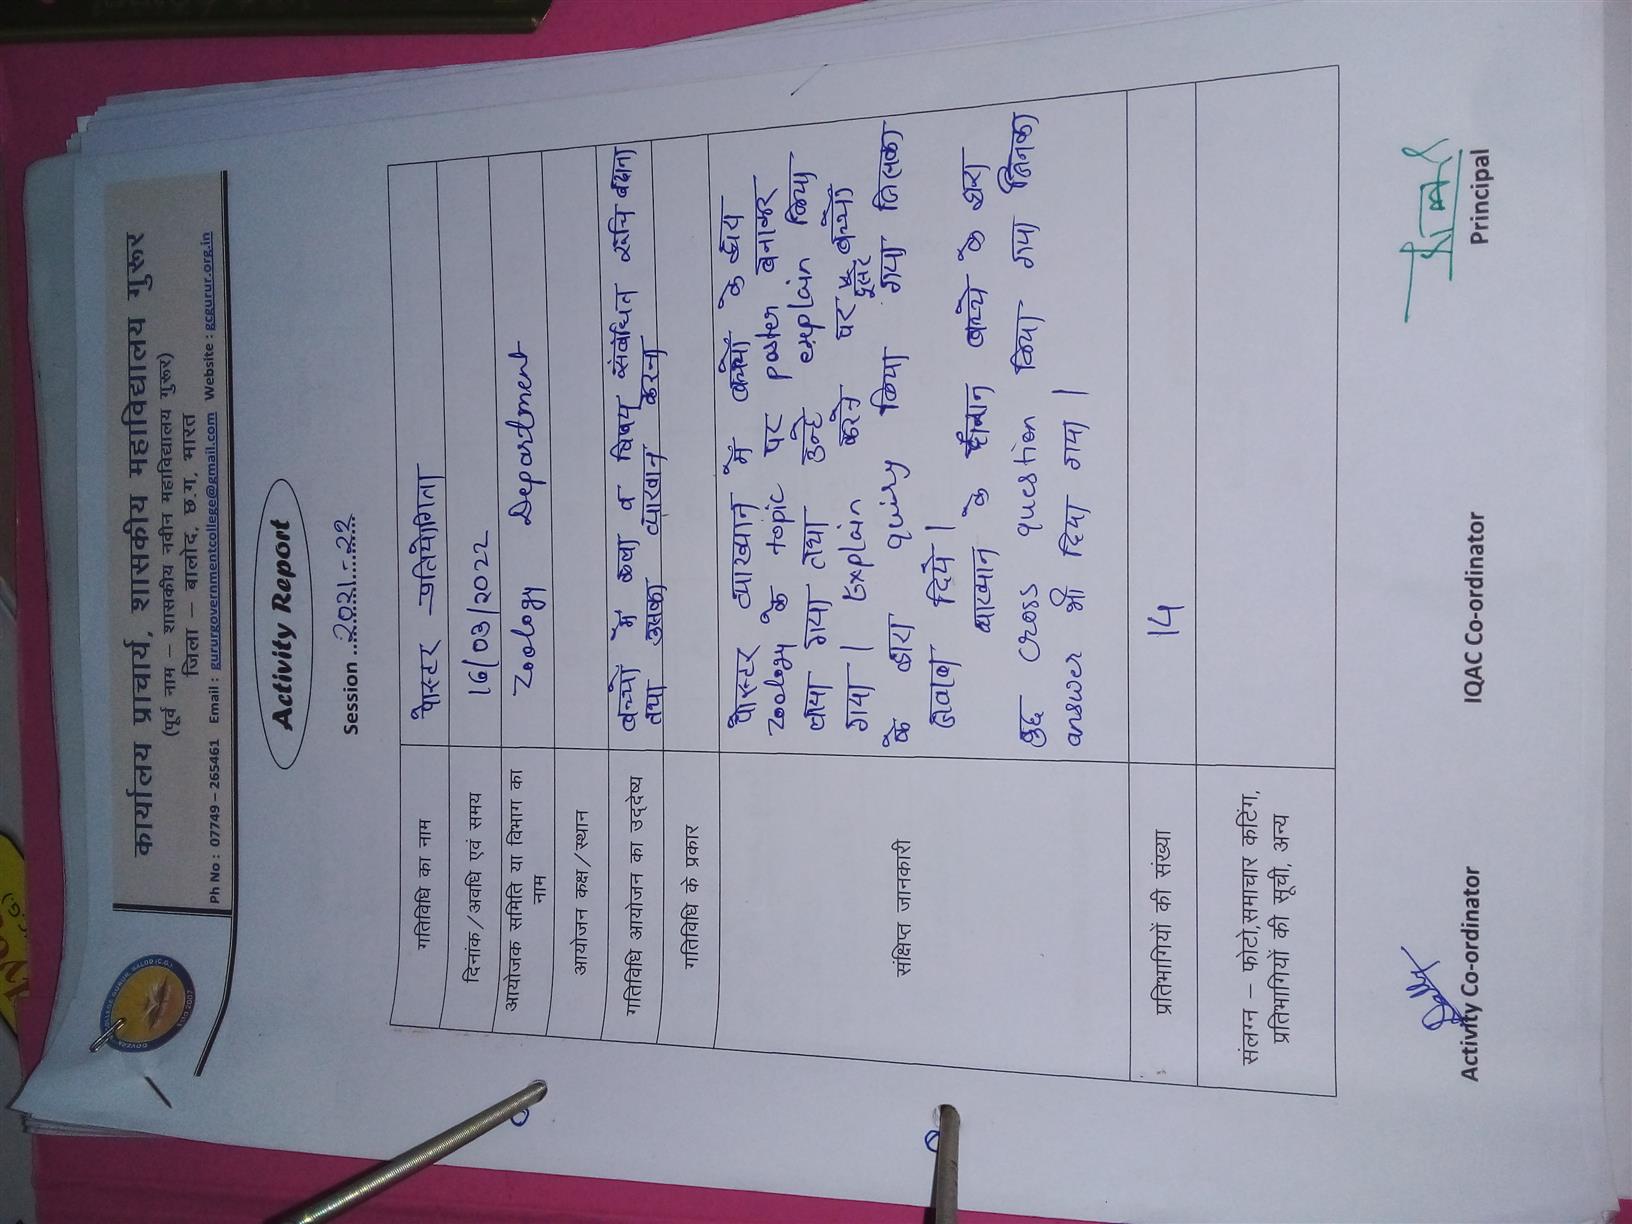 कार्यालय प्राचार्य, शासकीय महाविद्यालय गुरूर
(पूर्व नाम – शासकीय नवीन महाविद्यालय गुरूर)
जिला – बालोद, छ.ग. भारत
Ph No : 07749 – 265461 Email : gururgovernmentcollege@gmail.com Website : gcgurur.org.in
Activity Report
Session ..2021-22
गतिविधि का नाम पोस्टर प्रतियोगिता
दिनांक/अवधि एवं समय 16/03/2022
आयोजक समिति या विभाग का नाम Zoology Department
आयोजन कक्ष/स्थान
गतिविधि आयोजन का उद्देष्य बच्चों में कला व विषय संबंधित रूचि
तथा उसका व्याख्यान करना
गतिविधि के प्रकार
संक्षिप्त जानकारी
पोस्टर व्याख्यान में बच्चों के द्वारा
Zoology के topic पर poster बनाकर
लाया गया तथा उन्हे explain किया
गया | Explain करने पर दूसरे बच्चों
के द्वारा quiry किया गया जिसका
जवाब दिये |
व्याख्यान के दौरान बच्चो के द्वारा
कुछ cross question किया गया जिनका
answer भी दिया गया |
प्रतिभागियों की संख्या 14
संलग्न – फोटो,समाचार कटिंग,
प्रतिभागियों की सूची, अन्य
Activity Co-ordinator IQAC Co-ordinator Principal